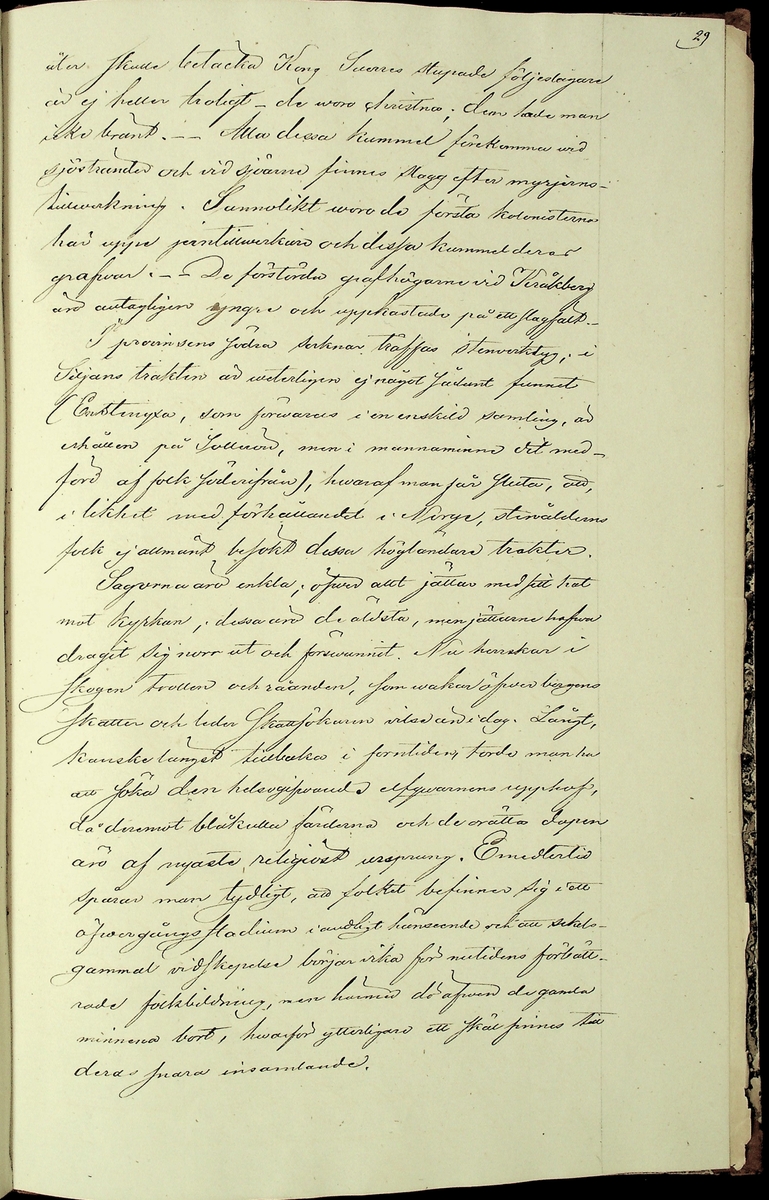 29
åter skulle betäcka Kong Sverres stupade följeslagare
är ej heller troligt – de woro christna; dem hade man
icke bränt. – – Alla dessa kummel förekomma wid
sjöstränder och vid sjöarne finnes slagg efter myrjerns-
tillwerkning. Sannolikt woro de första kolonisterna
här uppe jerntillwerkare och dessa kummel deras
grafvar. – – De förstörda grafhögarne vid Kråkberg
äro antagligen yngre och uppkastade på ett slagfält –
I provinsens södra socknar träffas stenverktyg; i
Siljans trakten är weterligen ej något sådant funnet
(En stenyxa, som förwaras i en enskild samling, är
erhållen på Sollerön, men i mannaminne dit med-
förd af folk söderifrån), hwaraf man får sluta, att,
i likhet med förhållandet i Norge, stenålderns
folk ej allmänt besökt dessa högländare trakter.
Sagorna äro enkla; öfver allt jättar med sitt hat
mot kyrkan; dessa äro de äldsta, men jättarne hafva
dragit sig norr ut och förswunnit. Nu herrskar i
skogen trollen och råanden, som wakar öfver bergens
skatter och leder skattsökaren vilse än i dag. Långt,
kanske längst tillbaka i forntiden, torde man ha
att söka den helsogifvande elfqwarnens upphof,
då deremot blåkulla färderna och de orätta dopen
äro af nyaste, religiöst ursprung. Emedlertid
spårar man tydligt, att folket befinner sig i ett
öfwergångsstadium i andligt hänseende och att sekel-
gammal vidskepelse börjar vika för nutidens förbätt-
rade folkbildning, men härmed dö äfven de gamla
minnena bort, hwarför ytterligare ett skäl finnes till
deras snara insamlande.